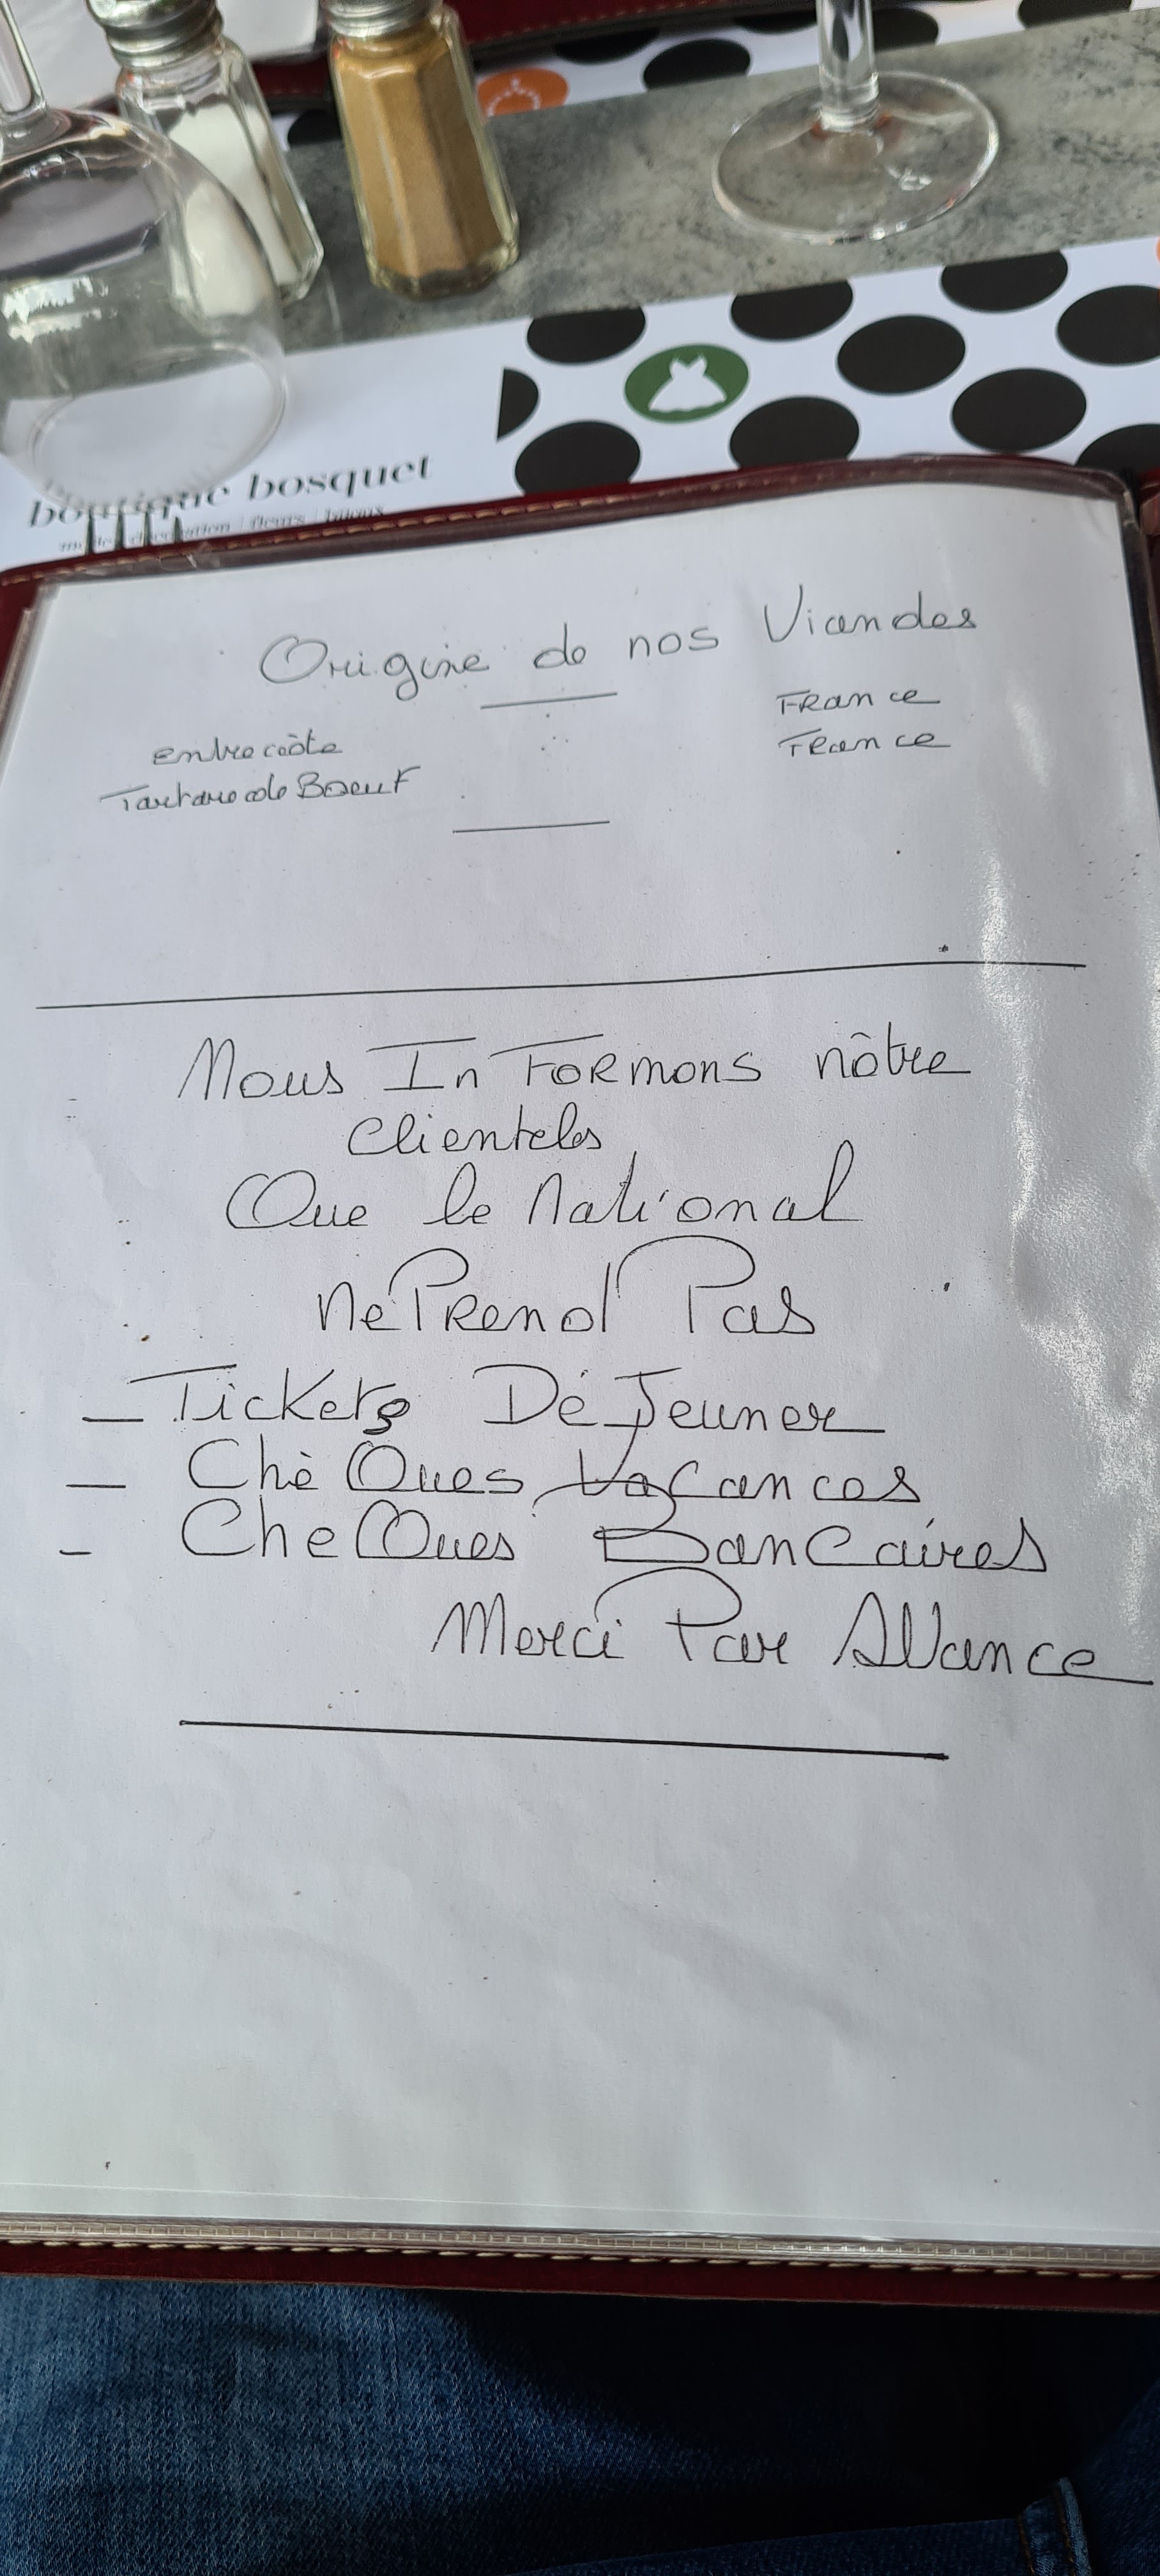 boutique bosquet
Origine de nos Viandes
entrecôte France
Tartare de Boeuf France
Nous InFormons nôtre
clienteles
Que le national
ne Prend Pas
— Tickets DéJeuner
— ChèQues Vacances
- CheQues Bancaires
Merci Par AVance